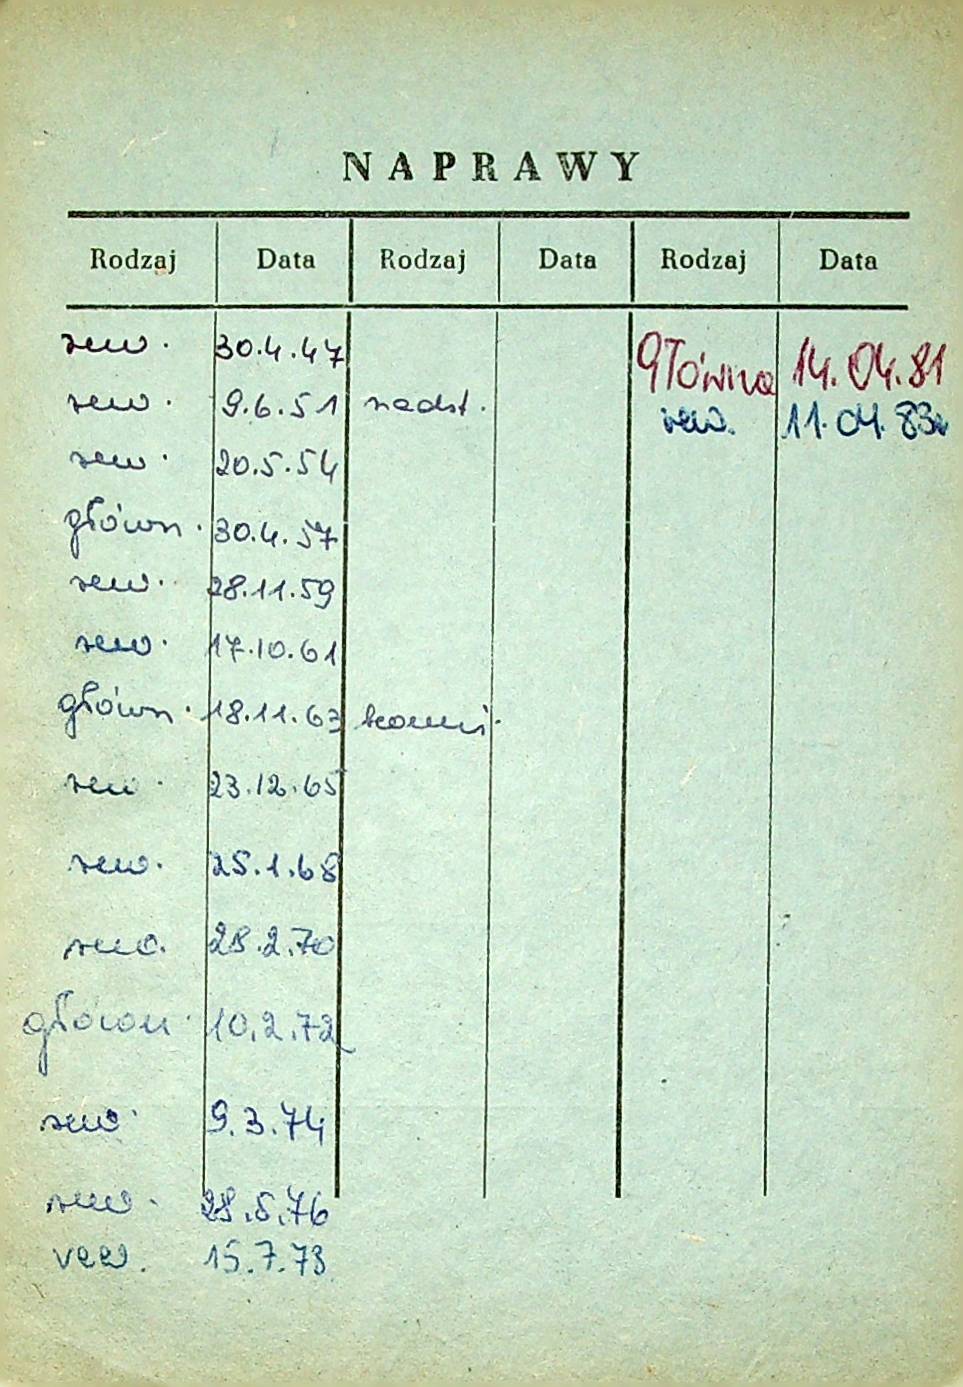 NAPRAWY
Rodzaj Data Rodzaj Data Rodzaj Data
rew. 30.4.47 Główna 14.04.81
rew. 9.6.51 nadst. rew. 11.04.83r
rew. 20.5.54
główn. 30.4.57
rew. 28.11.59
rew. 17.10.61
główn. 18.11.63
rew. 23.12.65
rew. 25.1.68
rew. 28.2.70
główn. 10.2.72
rew. 9.3.74
rew. 28.5.76
rew. 15.7.78